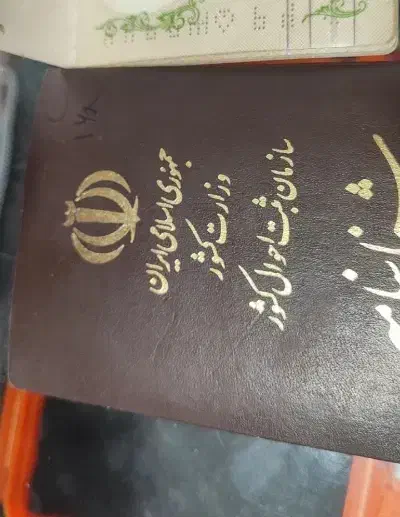 جمهوری اسلامی ایران
وزارت کشور
سازمان ثبت احوال کشور
شناسنامه